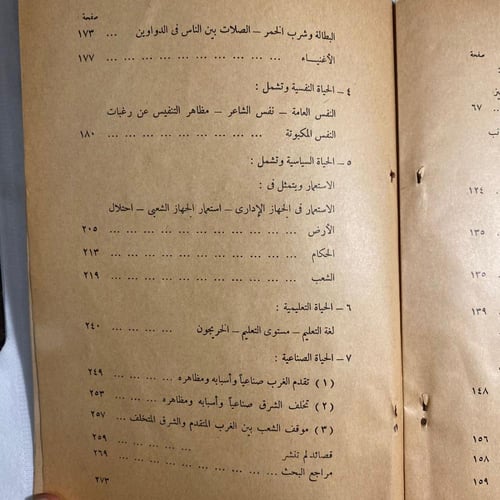 صفحة
البطالة وشرب الخمر – الصلات بين الناس فى الدواوين ... ١٧٣
الأغنيـاء ... ... ... ... ... ... ... ... ... ١٧٧
٤ – الحياة النفسية وتشمل :
النفس العامة – نفس الشاعر – مظاهر التنفيس عن رغبات
النفس المكبوتة ... ... ... ... ... ... ... ١٨٠
٥ – الحياة السياسية وتشمل :
الاستعمار ويتمثل فى :
الاستعمار فى الجهاز الإدارى – استعمار الجهاز الشعبى – احتلال
الأرض ... ... ... ... ... ... ... ... ... ٢٠٥
الحكام ... ... ... ... ... ... ... ... ... ٢١٣
الشعب ... ... ... ... ... ... ... ... ... ٢١٩
٦ – الحياة التعليمية :
لغة التعليم – مستوى التعليم – الخريجون ... ... ... ... ٢٤٠
٧ – الحياة الصناعية :
(١) تقدم الغرب صناعياً وأسبابه ومظاهره ... ... ... ... ٢٤٩
(٢) تخلف الشرق صناعياً وأسبابه ومظاهره ... ... ... ٢٥٣
(٣) موقف الشعب بين الغرب المتقدم والشرق المتخلف ... ٢٥٧
قصائد لم تنشر ... ... ... ... ... ٢٥٩
مراجع البحث ... ... ... ... ... ... ... ٢٦٩
٢٧٣
صفحة
٦٧
١٢٤
١٣٥
١٣٥
١٣٩
١٤٨
١٥٦
١٥٨
١٥٩